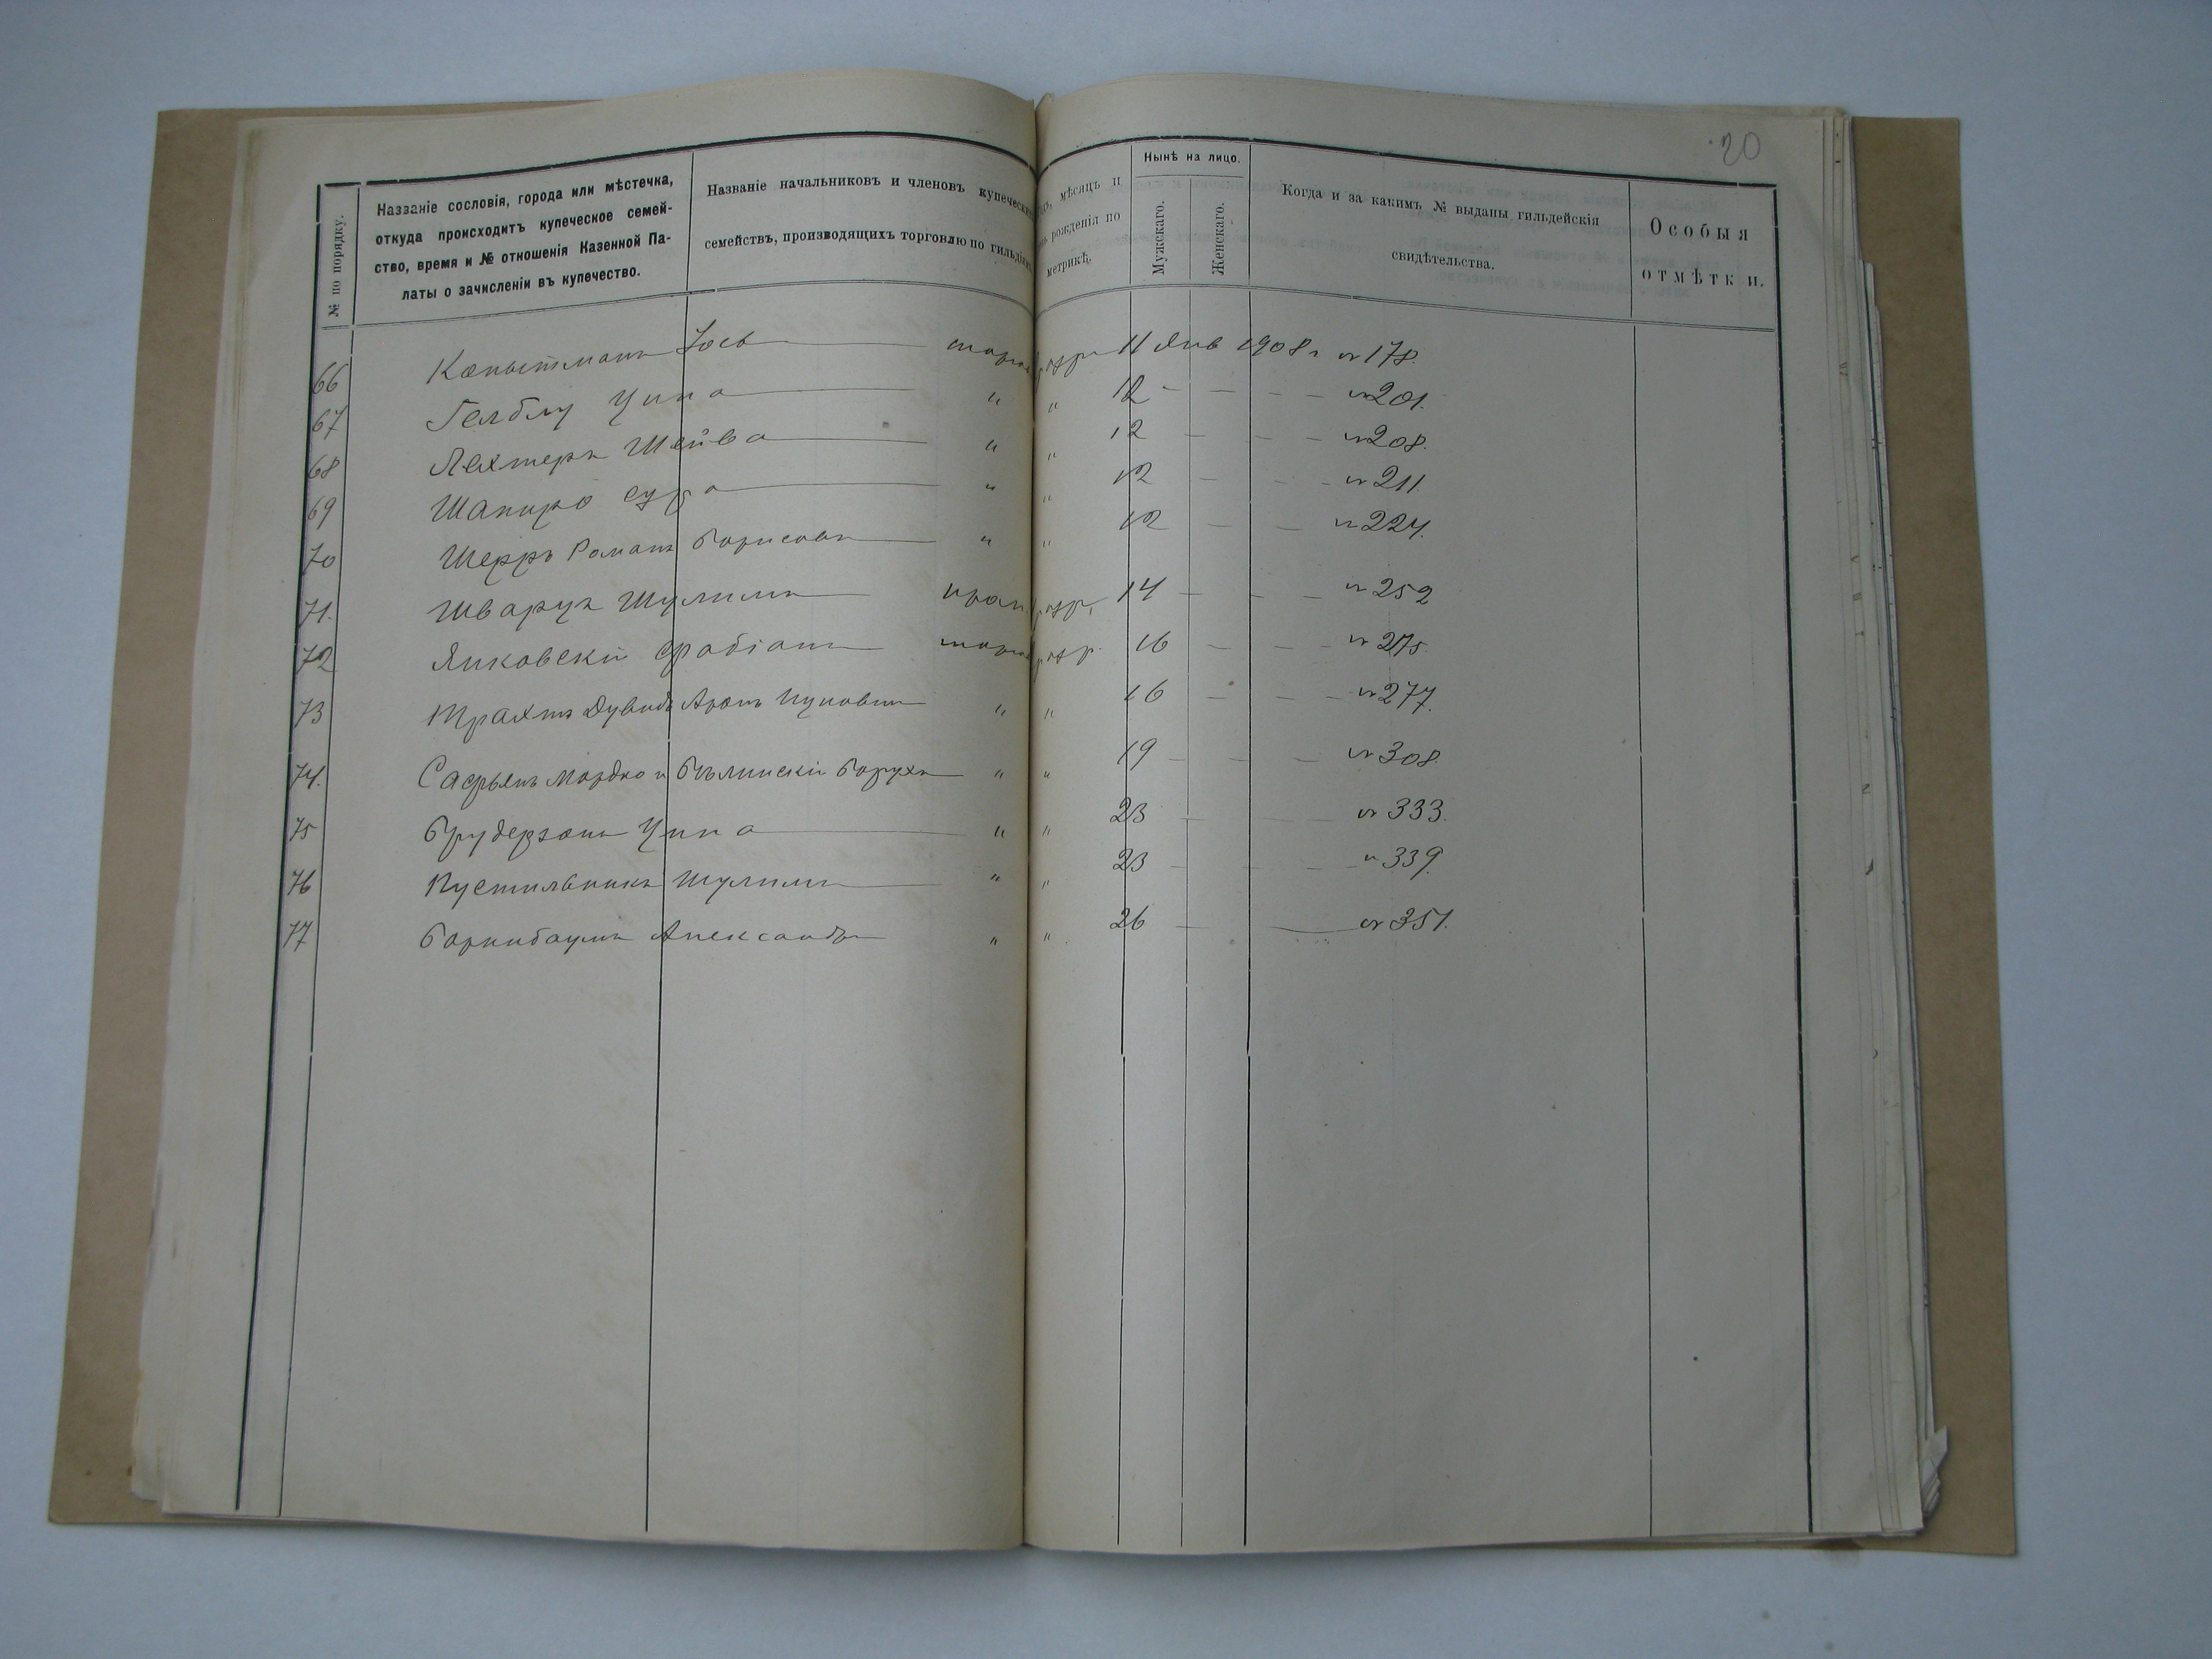 20
№ по порядку.
Названіе сословія, города или мѣстечка,
откуда происходитъ купеческое семей-
ство, время и № отношенія Казенной Па-
латы о зачисленіи въ купечество.
Названіе начальниковъ и членовъ купеческихъ
семействъ, производящихъ торговлю по гильдіямъ
мѣсяцъ и
рожденія по
метрикѣ.
Нынѣ на лицо.
Мужскаго.
Женскаго.
Когда и за какимъ № выданы гильдейскія
свидѣтельства.
Особыя
отмѣтки.
66 Копытманъ Іось разр 11 Янв 1908 г № 178.
67 Гелблу Ципа " " 12 - - - - № 201.
68 Лехтеръ Шейва " " 12 - - - № 208.
69 Шапиро Сура " " 12 - - - № 211.
70 Шерръ Романъ Борисовъ " " 12 - - № 224.
71. Шварцъ Шулимъ пром разр. 14 - - - № 252
72 Янковскій Фабіанъ разр. 16 - - - № 275
73 Трахтъ Дувидъ Аронъ Ицковичъ " " 16 - - - № 277.
74. Сафьянъ Мордко и Бѣлинскій Борухъ " " 19 - - - № 308.
75 Брудерзонъ Ципа " " 23 - - № 333.
76 Пустильникъ Шулимъ " " 23 - - - № 339.
77 Боринбаумъ Александръ " " 26 - № 351.